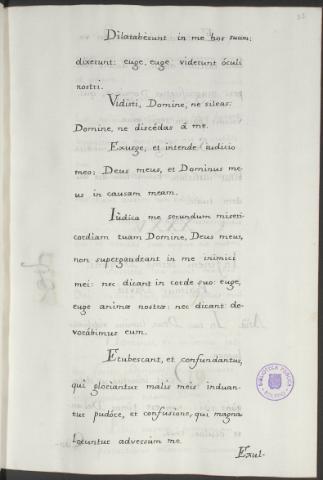 Dilatabérunt in me hos suum:
dixerunt: euge, euge viderunt óculi
nostri.
Vidisti, Domine, ne sileas:
Domine, ne discédas á me.
Exurge, et intende iudicio
meo: Deus meus, et Dominus me-
us in causam meam.
Iudica me secundum miseri-
cordiam tuam Domine, Deus meus,
non supergaudeant in me inimici
mei: nec dicant in corde suo: euge,
euge animæ nostræ: nec dicant de-
vorábimus eum.
Erubescant, et confundantur,
qui glociantur malis méis induan-
tur pudóre, et confusione, qui magna
locuntur adversum me.
Exul-
BIBLIOTECA PUBLICA